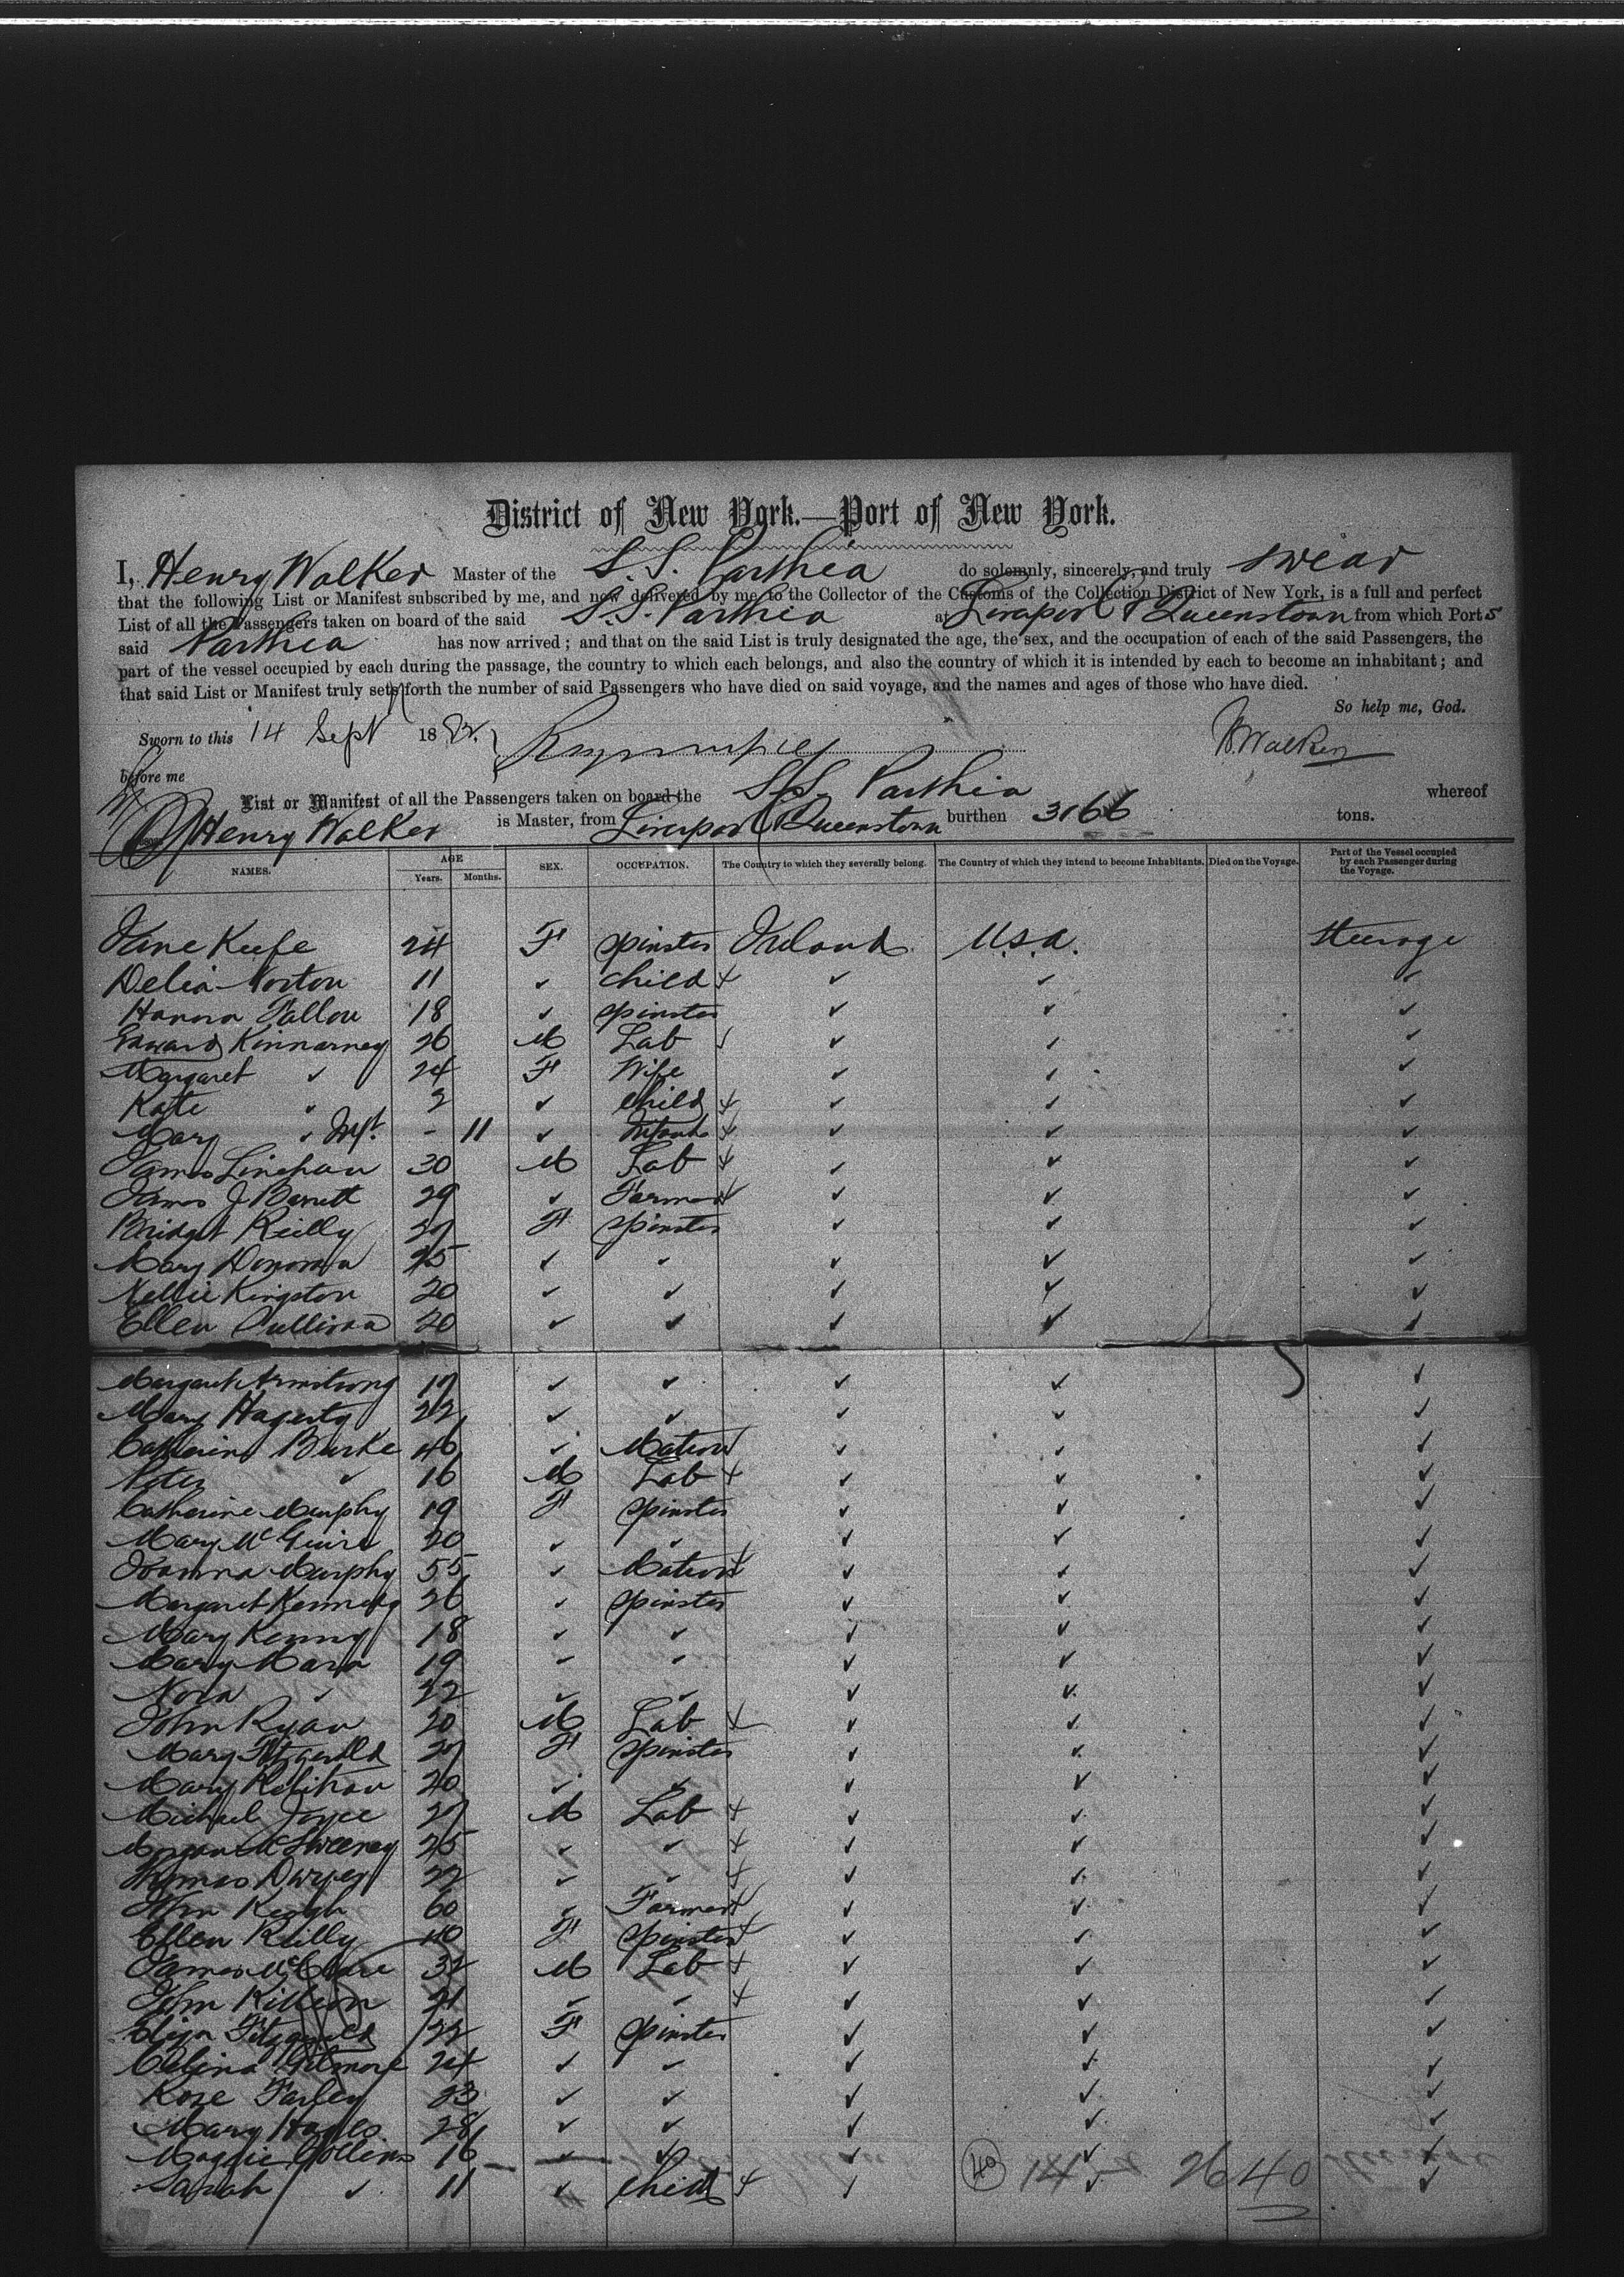 District of New York.—Port of New York.
I, Henry Walker Master of the S.S. Parthia do solemnly, sincerely, and truly swear
that the following List or Manifest subscribed by me, and now delivered by me to the Collector of the Customs of the Collection District of New York, is a full and perfect
List of all the Passengers taken on board of the said S.S. Parthia at Liverpool & Queenstown from which Ports
said Parthia has now arrived; and that on the said List is truly designated the age, the sex, and the occupation of each of the said Passengers, the
part of the vessel occupied by each during the passage, the country to which each belongs, and also the country of which it is intended by each to become an inhabitant; and
that said List or Manifest truly sets forth the number of said Passengers who have died on said voyage, and the names and ages of those who have died.
So help me, God.
Sworn to this 14 Sept 1882. H Walker
before me
List or Manifest of all the Passengers taken on board the S.S. Parthia whereof
Henry Walker is Master, from Liverpool & Queenstown burthen 3166 tons.
NAMES. AGE Years. Months. SEX. OCCUPATION. The Country to which they severally belong. The Country of which they intend to become Inhabitants. Died on the Voyage. Part of the Vessel occupied by each Passenger during the Voyage.
Jane Keefe 24 F spinster Ireland U.S.A. Steerage
Delia Norton 11 ✓ child ✓ ✓ ✓
Hanora Fallon 18 ✓ spinster ✓ ✓ ✓
Edward Kinnarney 26 M Lab ✓ ✓ ✓
Margaret ✓ 24 F Wife ✓ ✓ ✓
Kate ✓ 2 ✓ child ✓ ✓ ✓
Mary ✓ Inft. - 11 ✓ Infant ✓ ✓ ✓
James Linehan 30 M Lab ✓ ✓ ✓
James J Barrett 29 ✓ Farmer ✓ ✓ ✓
Bridget Reilly F spinster ✓ ✓ ✓
Mary Donovan 25 ✓ ✓ ✓ ✓ ✓
Nellie Kingston 20 ✓ ✓ ✓ ✓ ✓
Ellen Sullivan 20 ✓ ✓ ✓ ✓ ✓
Margaret Armstrong 17 ✓ ✓ ✓ ✓ ✓
Mary Hagerty 22 ✓ ✓ ✓ ✓ ✓
Catherine Burke 46 ✓ Matron ✓ ✓ ✓
Peter ✓ 16 M Lab ✓ ✓ ✓
Catherine Murphy 19 F spinster ✓ ✓ ✓
Mary McGuire 20 ✓ ✓ ✓ ✓ ✓
Joanna Murphy 55 ✓ Matron ✓ ✓ ✓
Margaret Kennedy 26 ✓ spinster ✓ ✓ ✓
Mary Kenny 18 ✓ ✓ ✓ ✓ ✓
Mary Mara 19 ✓ ✓ ✓ ✓ ✓
Nora ✓ 22 ✓ ✓ ✓ ✓ ✓
John Ryan 20 M Lab ✓ ✓ ✓
Mary Fitzgerald 27 F spinster ✓ ✓ ✓
Mary 20 ✓ ✓ ✓ ✓ ✓
Michael Joyce 27 M Lab ✓ ✓ ✓
Morgan McSweeney 25 ✓ ✓ ✓ ✓ ✓
Thomas Dwyer 22 ✓ ✓ ✓ ✓ ✓
John Keogh 60 ✓ Farmer ✓ ✓ ✓
Ellen Reilly 40 F spinster ✓ ✓ ✓
James 32 M Lab ✓ ✓ ✓
John Killeen 21 ✓ ✓ ✓ ✓ ✓
Eliza Fitzgerald 22 F spinster ✓ ✓ ✓
Celina Gilmore 24 ✓ ✓ ✓ ✓ ✓
Rose Farley 23 ✓ ✓ ✓ ✓ ✓
Mary 28 ✓ ✓ ✓ ✓ ✓
Maggie Collins 16 ✓ ✓ ✓ ✓ ✓
Sarah ✓ 11 ✓ child ✓ ✓ ✓
40 14 26 40